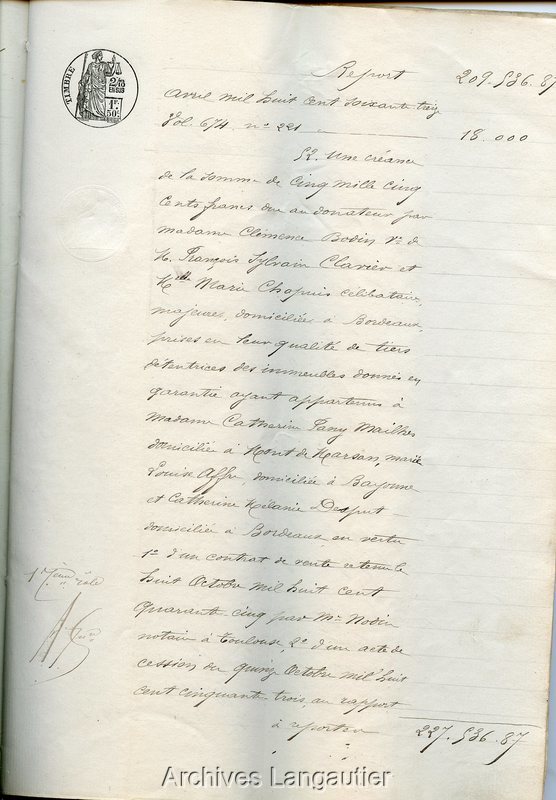 TIMBRE
2/10
EN SUS
1F.
50c
Report 209.536.87
avril mil huit cent soixante treize
Vol. 674. n° 221 18.000
52. Une créance
de la somme de Cinq mille cinq
cents francs due au donateur par
madame Clémence Bodin Vve de
M. François Sylvain Clavier et
Melle Marie Chapuis célibataire,
majeures, domiciliées à Bordeaux,
prises en leur qualité de tiers
détentrices des immeubles donnés en
garantie ayant appartenus à
madame Catherine Fany Mailhes
domiciliée à Mont de Marsan, marie
Louise Affre, domiciliée à Bayonne
et Catherine Mélanie
domiciliée à Bordeaux en vertu
1° d'un contrat de vente retenu le
huit Octobre mil huit cent
quarante cinq par Me Nodin
notaire à Toulouse, 2° d'un acte de
cession du quinze Octobre mil huit
cent cinquante trois, au rapport
à reporter 227.536.87
rôle
Archives Langautier